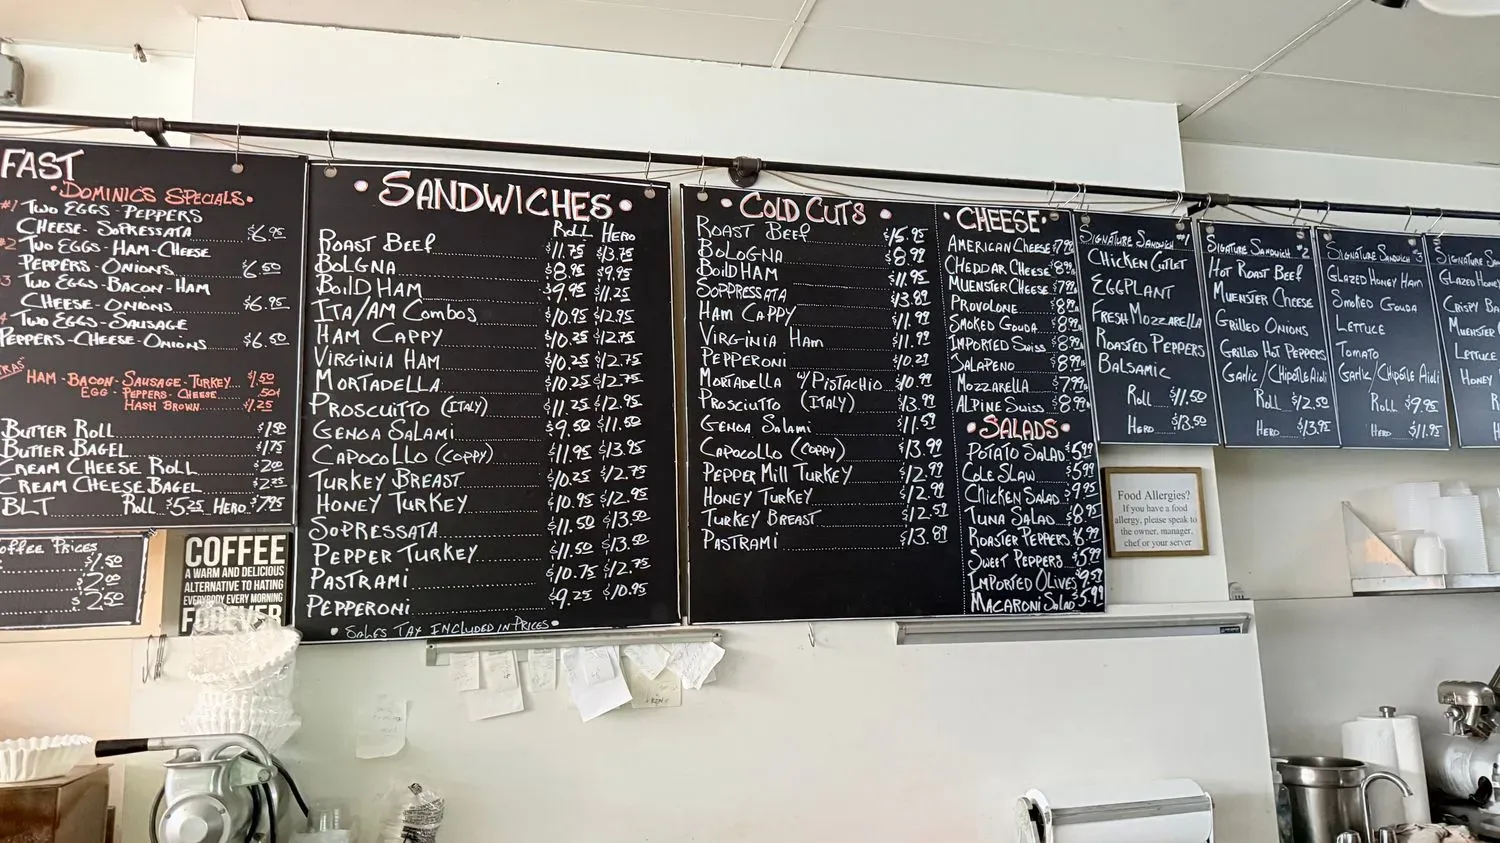 FAST
• DOMINIC'S SPECIALS •
#1 TWO EGGS - PEPPERS
CHEESE - SOPRESSATA $6.95
#2 TWO EGGS - HAM - CHEESE
PEPPERS - ONIONS $6.50
3 TWO EGGS - BACON - HAM
CHEESE - ONIONS $6.95
4 TWO EGGS - SAUSAGE
PEPPERS - CHEESE - ONIONS $6.50
TRAS
HAM - BACON - SAUSAGE - TURKEY $1.50
EGG - PEPPERS - CHEESE .50¢
HASH BROWN $1.25
BUTTER ROLL
BUTTER BAGEL $1.75
CREAM CHEESE ROLL $2.00
CREAM CHEESE BAGEL $2.75
BLT ROLL $5.25 HERO $7.95
OFFEE PRICES
$1.50
$2.00
$2.50
COFFEE
A WARM AND DELICIOUS
ALTERNATIVE TO HATING
EVERYBODY EVERY MORNING
FOREVER
• SANDWICHES •
ROLL HERO
ROAST BEEF $11.75 $13.75
BOLGNA $8.95 $9.95
BOILD HAM $9.95 $11.25
ITA/AM COMBOS $10.95 $12.95
HAM CAPPY $10.25 $12.75
VIRGINIA HAM $10.25 $12.75
MORTADELLA $10.25 $12.75
PROSCUITTO (ITALY) $11.25 $12.95
GENOA SALAMI $9.50 $11.50
CAPOCOLLO (COPPY) $11.95 $13.95
TURKEY BREAST $10.25 $12.75
HONEY TURKEY $10.95 $12.95
SOPRESSATA $11.50 $13.50
PEPPER TURKEY $11.50 $13.50
PASTRAMI $10.75 $12.75
PEPPERONI $9.25 $10.95
• SALES TAX INCLUDED IN PRICES •
• COLD CUTS •
ROAST BEEF $15.95
BOLOGNA $8.99
BOILD HAM $11.95
SOPPRESSATA $13.89
HAM CAPPY $11.99
VIRGINIA HAM $11.99
PEPPERONI $10.29
MORTADELLA W/PISTACHIO $10.99
PROSCIUTTO (ITALY) $13.99
GENOA SALAMI $11.59
CAPOCOLLO (COPPY) $13.99
PEPPER MILL TURKEY $12.99
HONEY TURKEY $12.99
TURKEY BREAST $12.59
PASTRAMI $13.89
• CHEESE •
AMERICAN CHEESE $7.99
CHEDDAR CHEESE $8.99
MUENSTER CHEESE $7.99
PROVOLONE $8.99
SMOKED GOUDA $8.99
IMPORTED SWISS $8.99
JALAPENO $8.99
MOZZARELLA $7.99
ALPINE SWISS $8.99
• SALADS •
POTATO SALAD $5.99
COLE SLAW $5.99
CHICKEN SALAD $9.95
TUNA SALAD $8.95
ROASTER PEPPERS $6.99
SWEET PEPPERS $5.99
IMPORTED OLIVES $9.59
MACARONI SALAD $5.99
SIGNATURE SANDWICH #1
CHICKEN CUTLET
EGGPLANT
FRESH MOZZARELLA
ROASTED PEPPERS
BALSAMIC
ROLL $11.50
HERO $13.50
SIGATURE SANDWICH #2
HOT ROAST BEEF
MUENSTER CHEESE
GRILLED ONIONS
GRILLED HOT PEPPERS
GARLIC/CHIPOTLE AIOLI
ROLL $12.50
HERO $13.95
SIGNATURE SANDWICH #3
GLAZED HONEY HAM
SMOKED GOUDA
LETTUCE
TOMATO
GARLIC/CHIPOTLE AIOLI
ROLL $9.95
HERO $11.95
SIGNATURE SA
GLAZED HONEY
CRISPY BA
MUENSTER
LETTUCE
HONEY
ROLL
HERO
Food Allergies?
If you have a food
allergy, please speak to
the owner, manager,
chef or your server